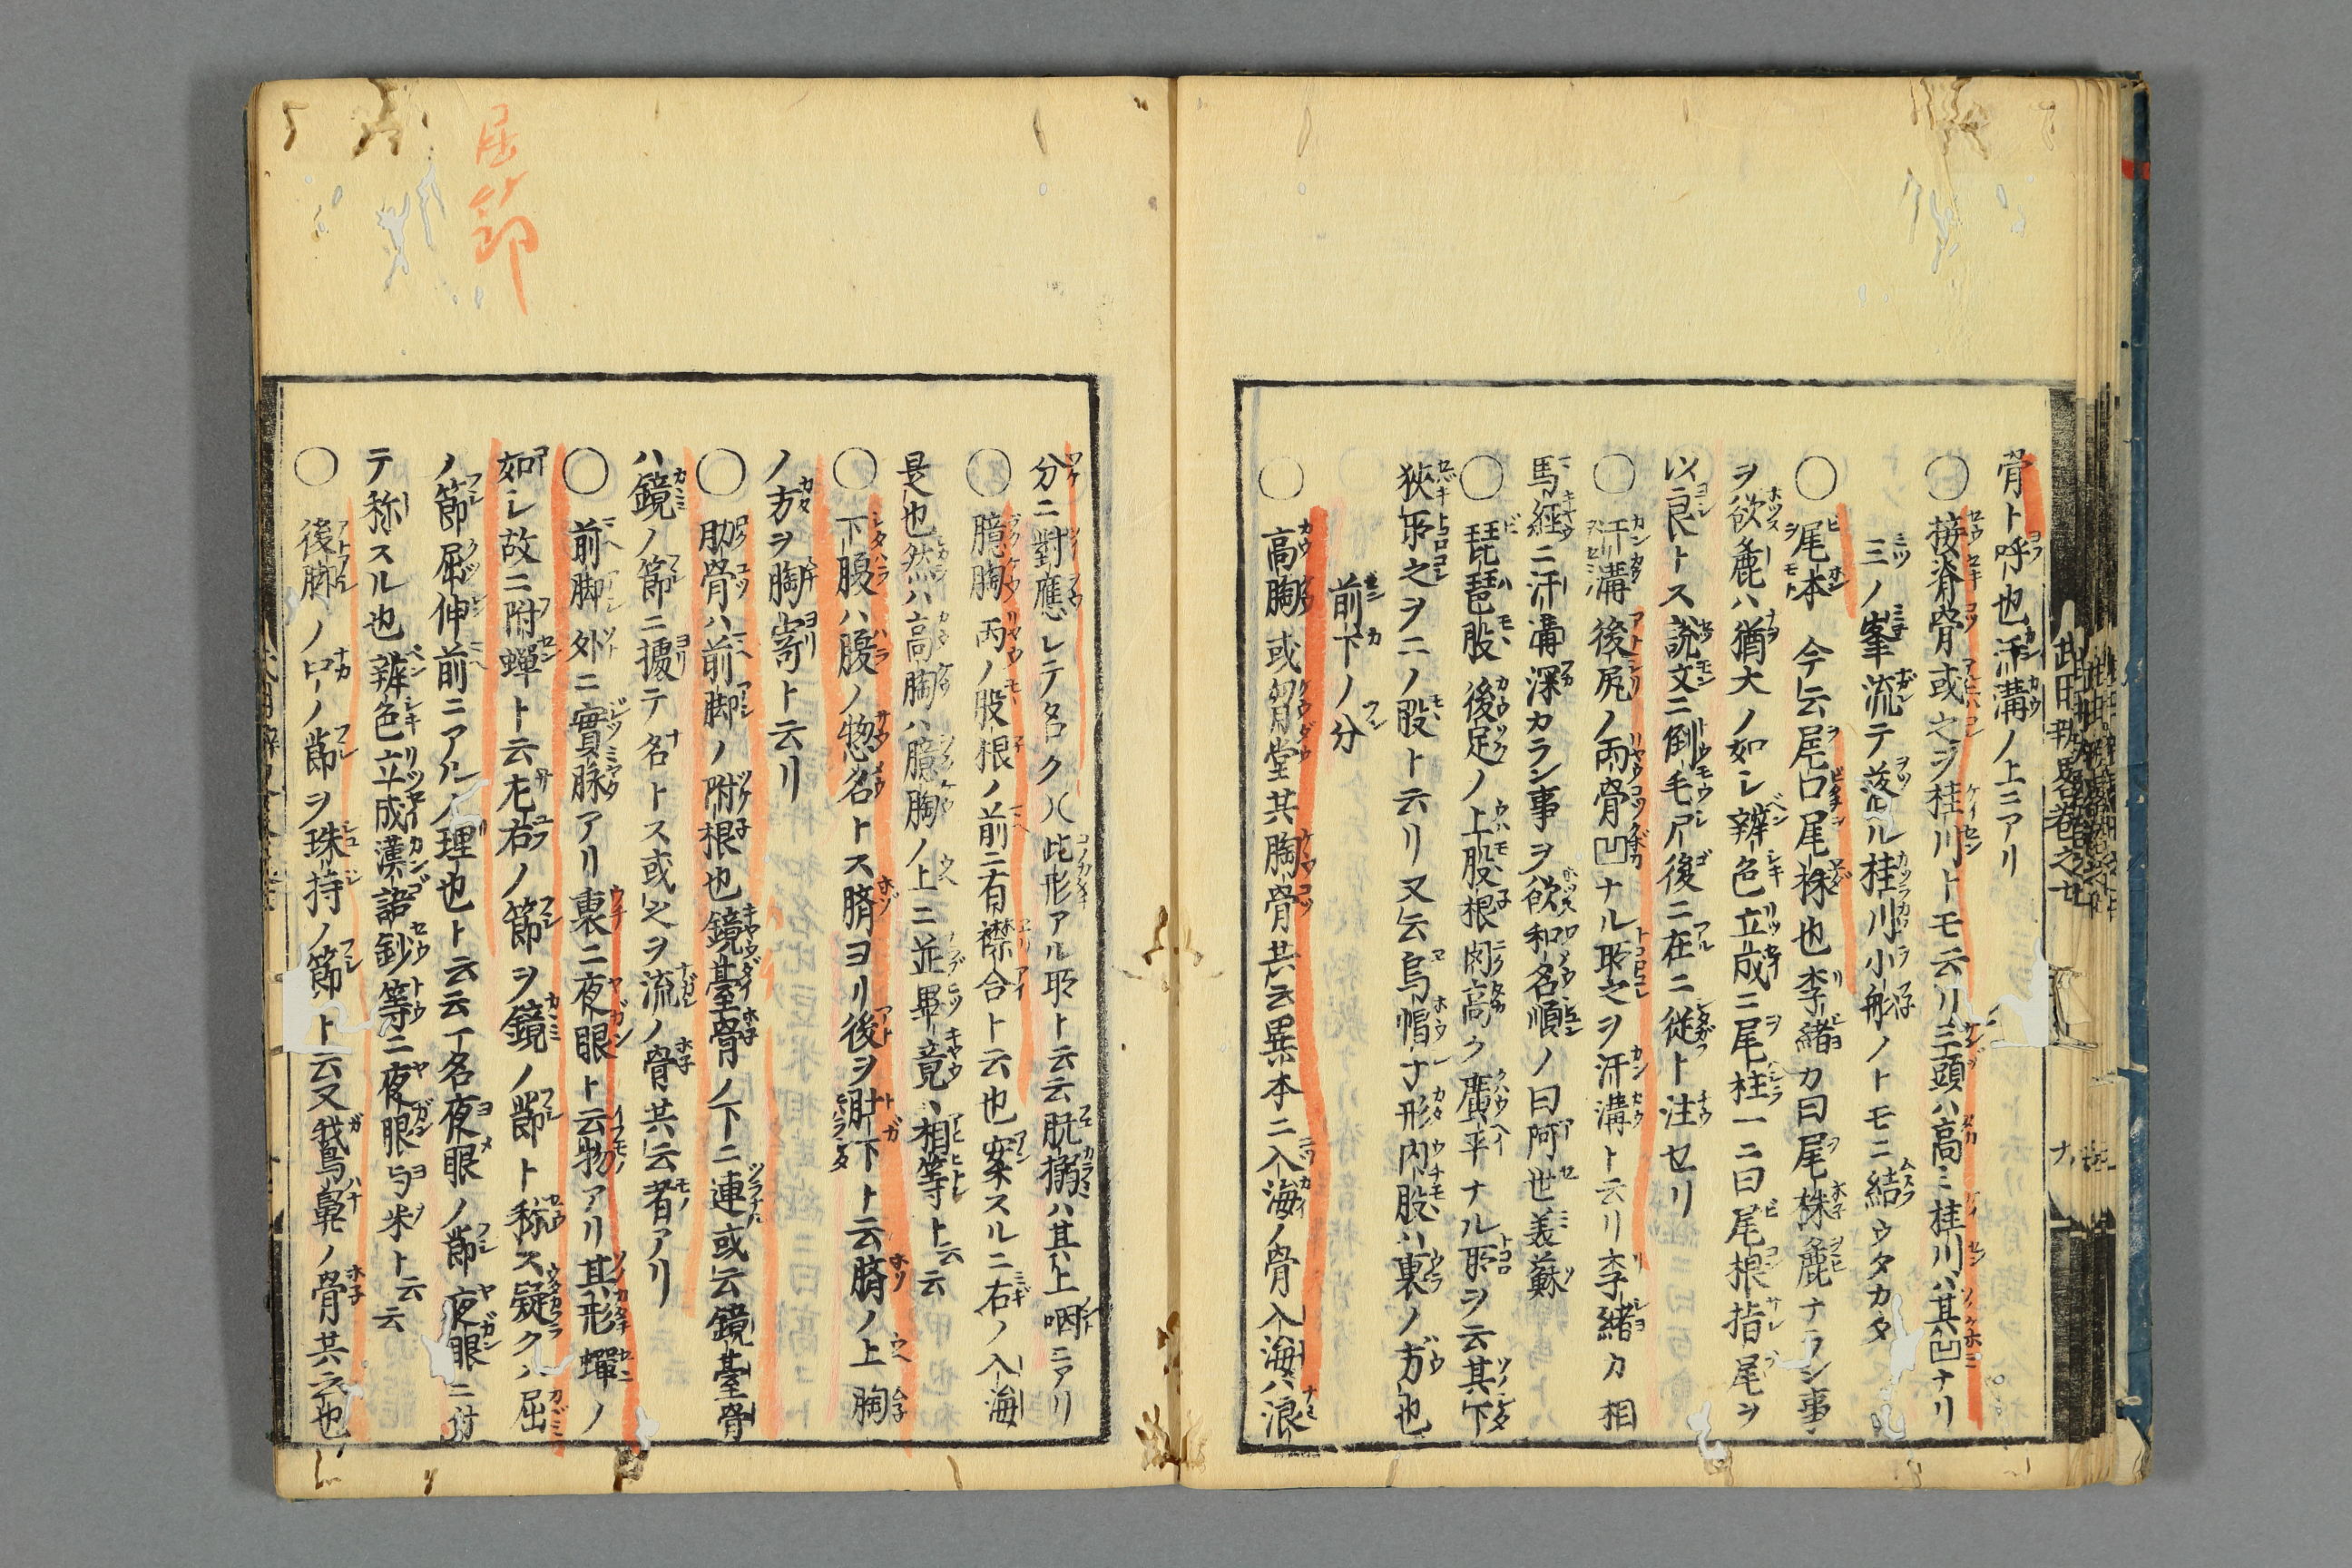 骨ト呼也汗溝ノ上ニアリ
○接脊骨或之ヲ桂川トモ云リ三頭ハ高ミ桂川ハ其凹ナリ
三ノ峯流テ落ル桂川小舟ノトモニ結ウタカタ
○尾本 今云尾口尾祿也李緒カ曰尾株麁ナラン事
ヲ欲麁ハ猶大ノ如シ辨色立成ニ尾柱一ニ曰尾根指尾ヲ
以良トス説文ニ倒毛尸後ニ在ニ従ト注セリ
○汗溝後尻ノ両骨凹ナル所之ヲ汗溝ト云リ李緒カ相
馬経ニ汗溝深カラン事ヲ欲和名順ノ曰阿世美蘇
○琵琶股後足ノ上股根闊高ク廣平ナル所ヲ云其下
狹所之ヲニノ股ト云リ又云烏帽子形内股ハ裏ノ方也
前下ノ分
○高胸或匈堂其胸骨共云異本ニ入海ノ骨入海ハ浪
分ニ對應シテ名ク八此形アル所ト云云胱搦ハ其上咽ニアリ
○臆胸両ノ股根ノ前ニ有襟合ト云也案スルニ右ノ入海
是也然ハ高胸ハ臆胸ノ上ニ並畢竟相等ト云云
○下腹ハ腹ノ惣名トス臍ヨリ後ヲ謝下ト云臍ノ上胸
ノ方ヲ胸寄ト云リ
○肋骨ハ前脚ノ附根也鏡臺骨ノ下ニ連或云鏡臺骨
ハ鏡ノ節ニ據テ名トス或之ヲ流ノ骨共云者アリ
○前脚外ニ實脉アリ裏ニ夜眼ト云物アリ其形蟬ノ
如シ故ニ附蟬ト云左右ノ節ヲ鏡ノ節ト称ス疑クハ屈
ノ節屈伸前ニアルノ理也ト云云一名夜眼ノ節夜眼ニ付
テ称スル也辨色立成漢語鈔等ニ夜眼与米ト云云
○後脚ノ中ノ節ヲ珠持ノ節ト云又鵞鼻ノ骨共云也
屈節